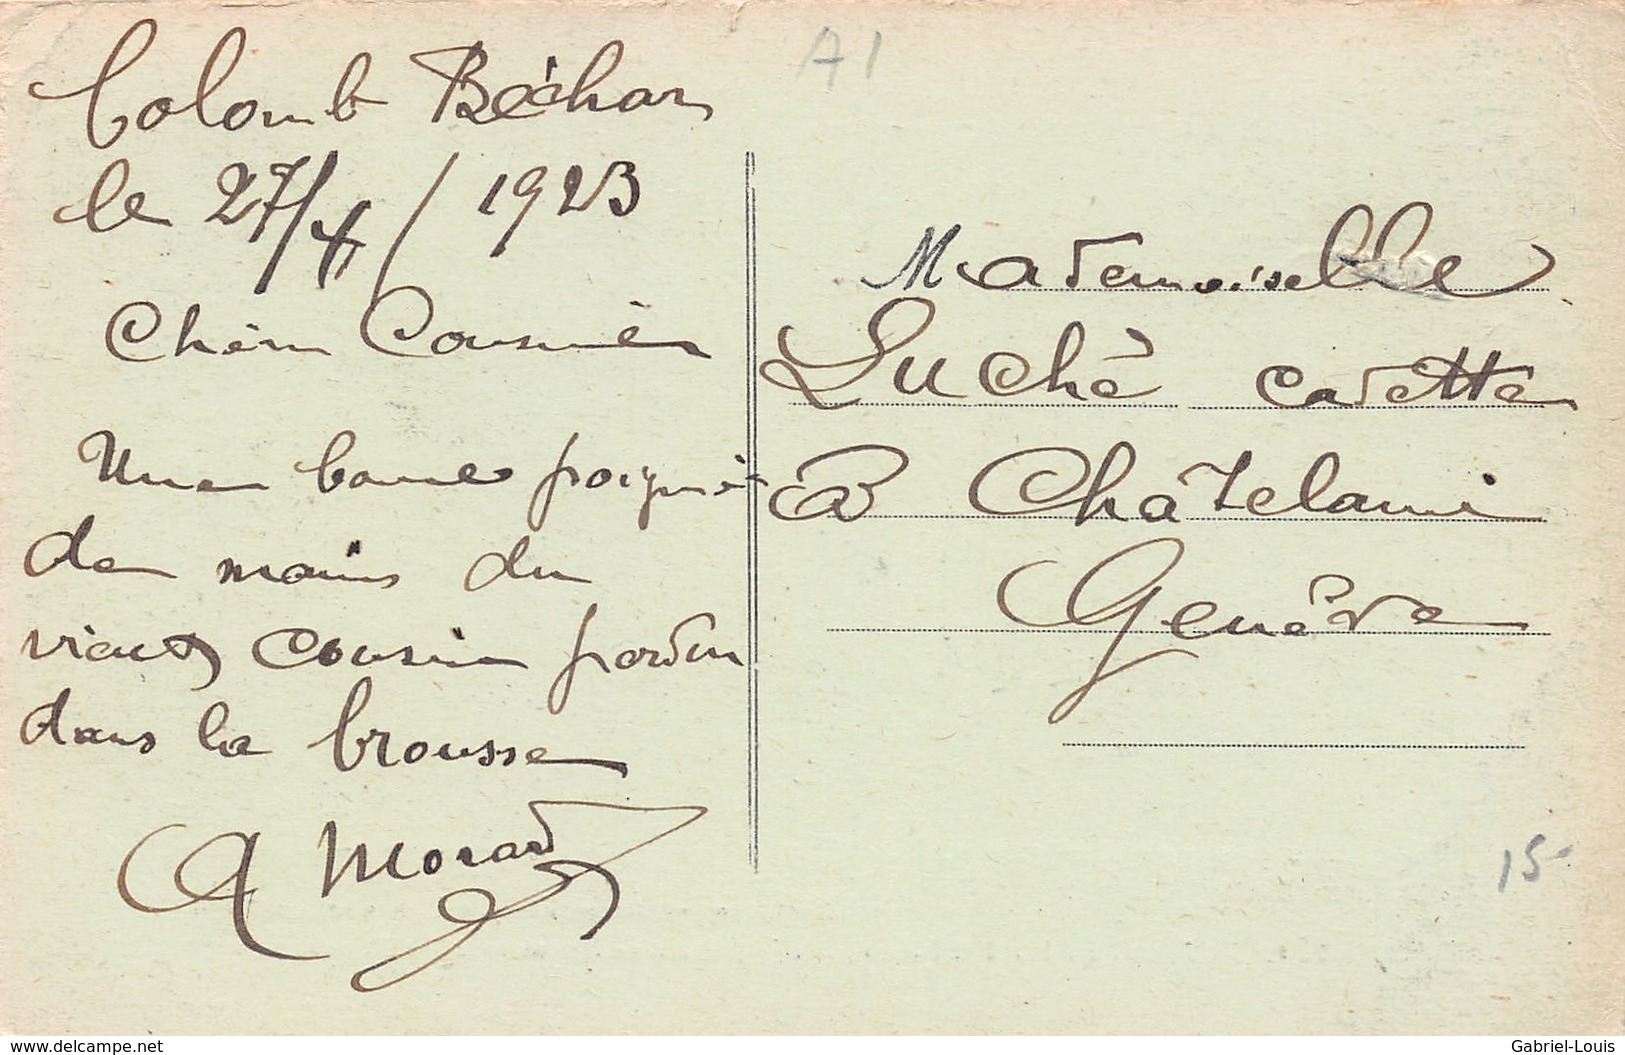 A1
Colomb Béchar
le 27/X/1923
Chère Cousine
Une bonne poigné
de mains du
vieux cousin perdu
dans la brousse
A Morard
Mademoiselle
Luché cadette
à Châtelaine
Genève
15-
www.delcampe.net
Gabriel-Louis